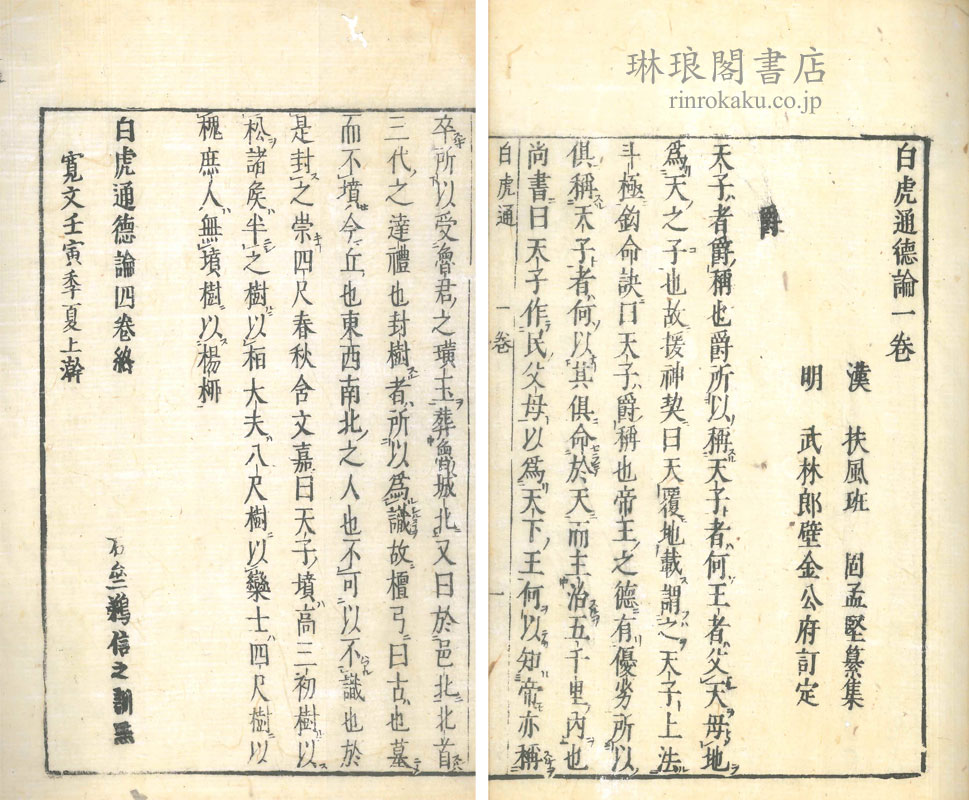 琳琅閣書店
rinrokaku.co.jp
白虎通德論一卷
漢　扶風班　固孟堅纂集
明　武林郎壁金公府訂定
爵
天子者爵稱也爵所以稱天子者何王者父天母地
爲天之子也故援神契曰天覆地載謂之天子上法
斗極鈎命決曰天子爵稱也帝王之德有優劣所以
俱稱天子者何以其俱命於天而主治五千里內也
尚書曰天子作民父母以爲天下王何以知帝亦稱
白虎通　一卷　一
卒所以受魯君之璜玉葬魯城北又曰於邑北北首
三代之達禮也封樹者所以爲識故檀弓曰古也墓
而不墳今丘也東西南北之人也不可以不識也於
是封之崇四尺春秋含文嘉曰天子墳高三初樹以
松諸矦半之樹以栢大夫八尺樹以欒士四尺樹以
槐庶人無墳樹以楊桺
白虎通德論四卷終
寛文壬寅季夏上澣
鵜信之訓點